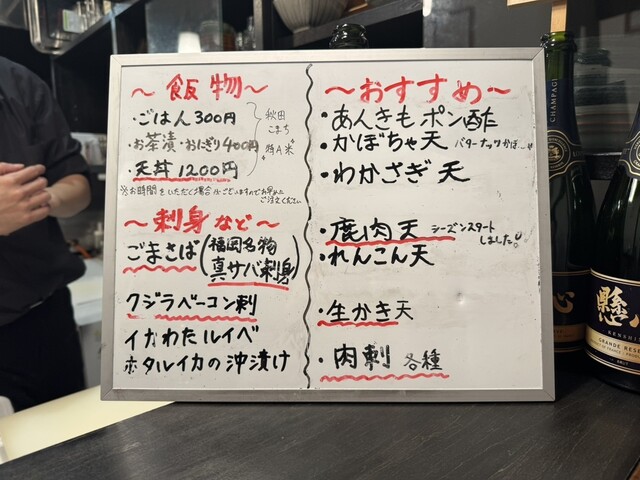 〜飯物〜
・ごはん300円
・お茶漬・おにぎり400円
・天丼1200円
秋田
こまち
"特A米"
※お時間をいただく場合がございますのでお早めに
ご注文ください
〜刺身など〜
ごまさば(福岡名物
真サバ刺身)
クジラベーコン刺
イカわたルイベ
ホタルイカの沖漬け
〜おすすめ〜
・あんきもポン酢
・かぼちゃ天 バターナッツかぼ
・わかさぎ天
・鹿肉天 シーズンスタート
しました!
・れんこん天
・生かき天
・肉刺 各種
CHAMPAG
懸
KENSHIN
GRANDE RESE